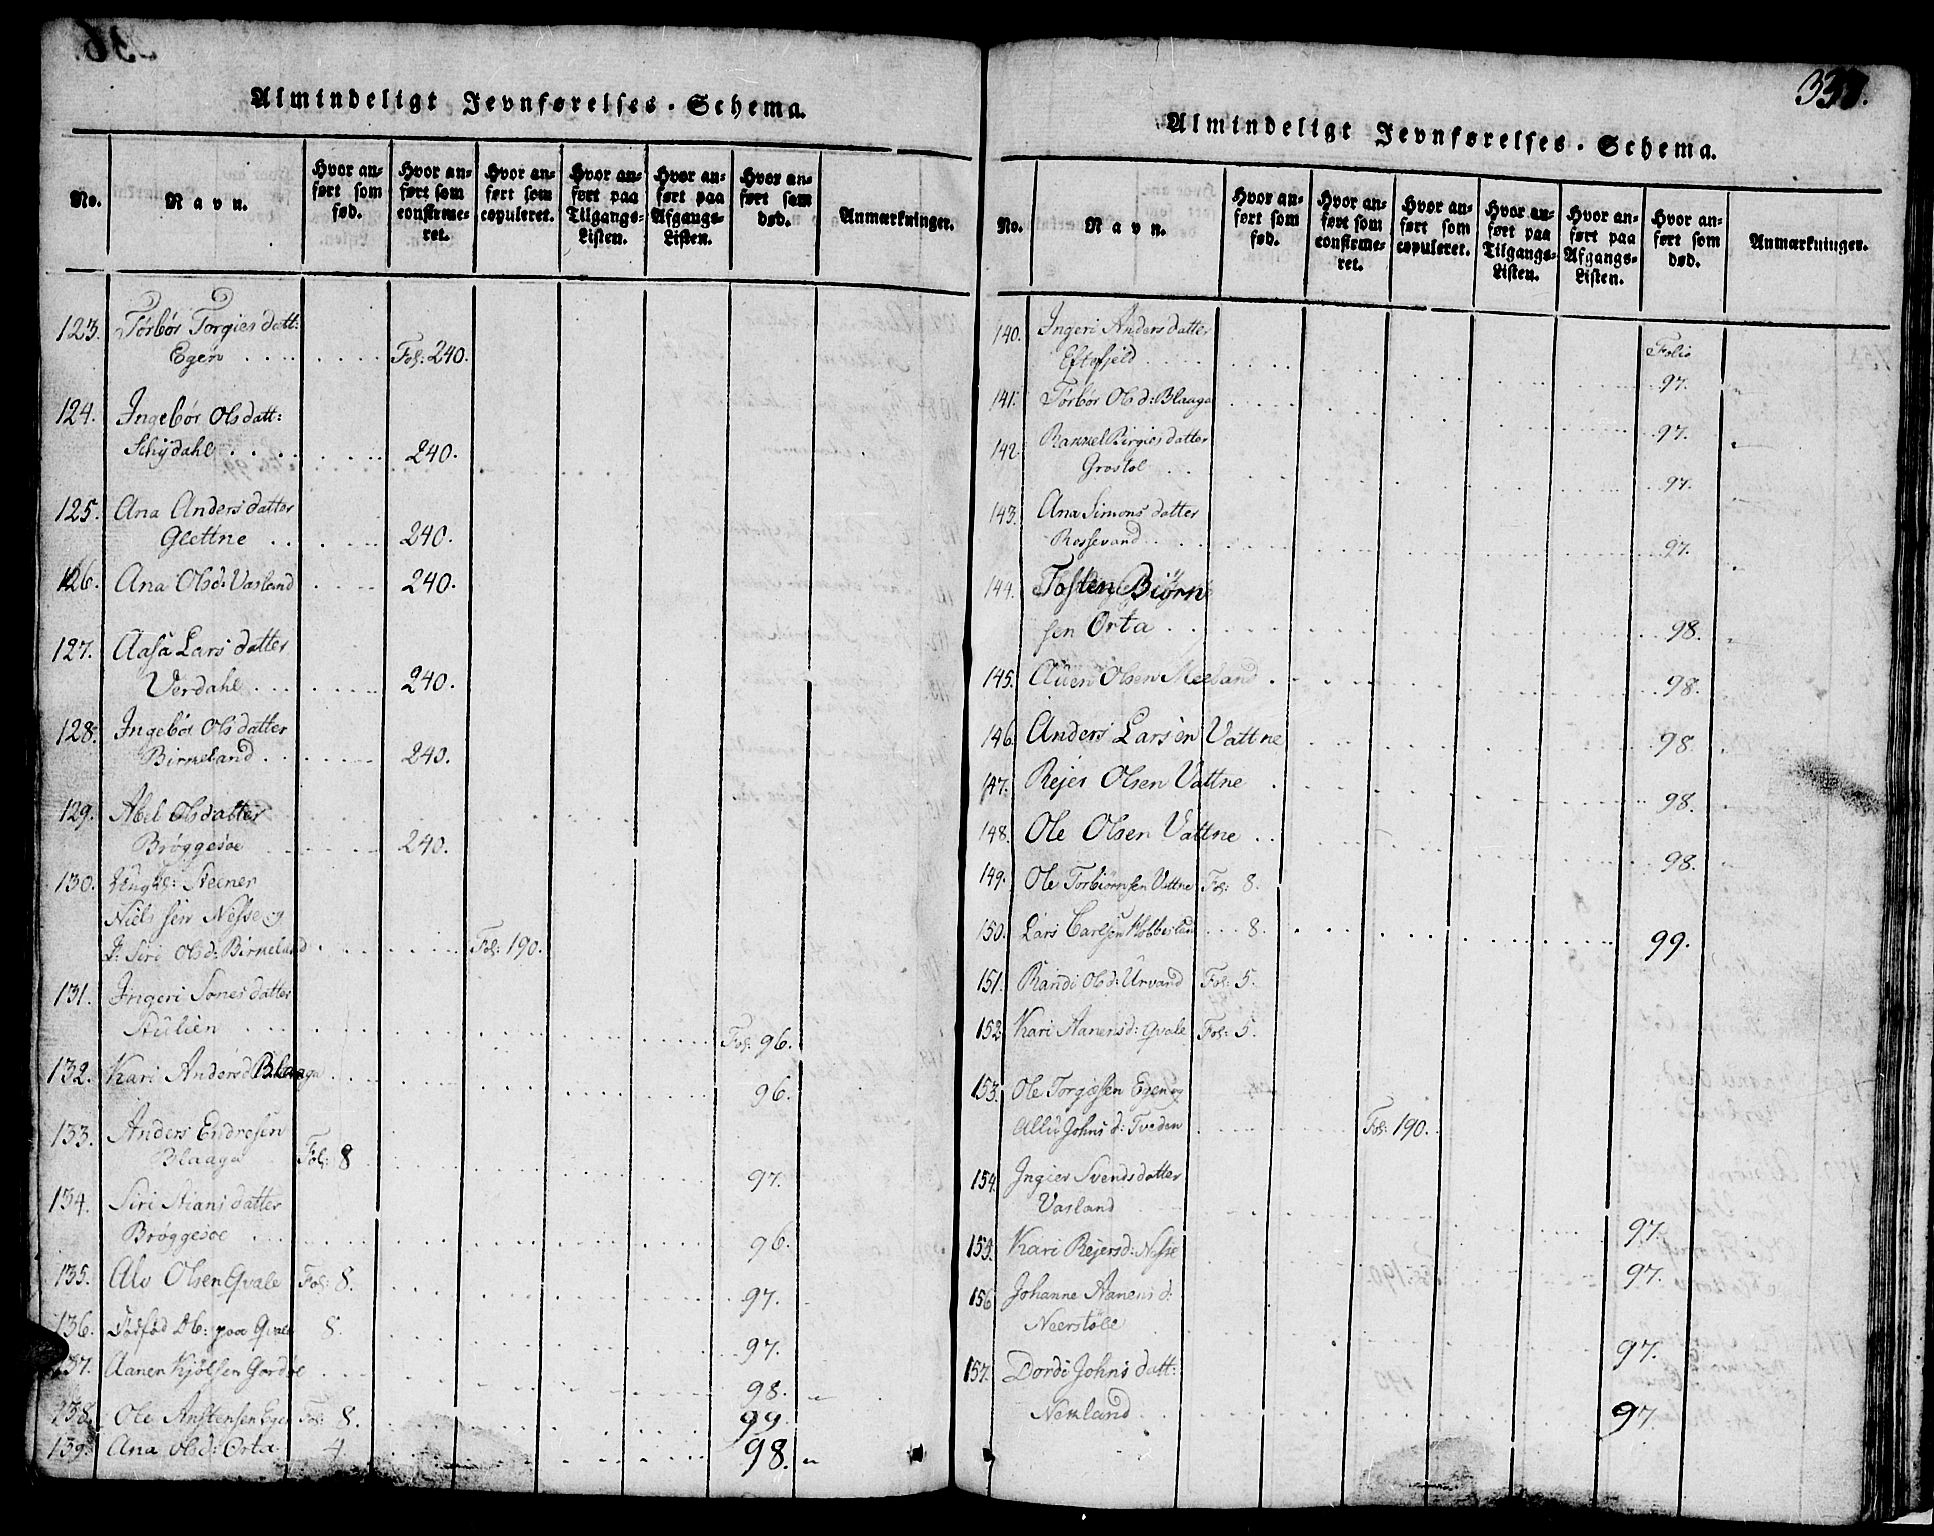 Almindeligt Jevnførelses-Schema.
No.
Navn.
Hvor an-
ført som
fød.
Hvor an-
ført som
confirme-
ret.
Hvor an-
ført som
copuleret.
Hvor an-
ført paa
Tilgangs-
Listen.
Hvor an-
ført paa
Afgangs-
Listen.
Hvor an-
ført som
død.
Anmærkninger.
123. Torbør Torgiesdatt:
Egen . . . . Fol: 240.
124. Ingebør Olsdatt:
Schydahl . . . . 240.
125. Ana Andersdatter
Glettne . . . . 240.
126. Ana Olsd: Vasland . . 240.
127. Aasa Larsdatter
Verdahl . . . . 240.
128. Ingebør Olsdatter
Birkeland . . . . 240.
129. Abel Olsdatter
Brøggesøe . . . . 240.
130. Ungk: Steener
Nielssen Nesse og
P: Siri Olsd: Birkeland . . . . Fol: 190.
131. Ingeri Sonesdatter
Stulien . . . . Fol: 96.
132. Kari Andersd Blaaga . . . . 96.
133. Anders Endresen
Blaaga Fol: 8 . . . . 97.
134. Siri Stiansdatter
Brøggesøe . . . . 96.
135. Alv Olsen Qvale Fol: 8. . . . . 97.
136. Dødfød Db: paa Qvale 8. . . . . 97.
137. Aanen Kjølsen . . . . 98. "
138. Ole Anstensen Egen Fol: 8. . . . . 99.
139. Ana Olsd: Orta 4. . . . . 98. "
337.
Almindeligt Jevnførelses-Schema.
No.
Navn.
Hvor an-
ført som
fød.
Hvor an-
ført som
confirme-
ret.
Hvor an-
ført som
copuleret.
Hvor an-
ført paa
Tilgangs-
Listen.
Hvor an-
ført paa
Afgangs-
Listen.
Hvor an-
ført som
død.
Anmærkninger.
140. Ingeri Andersdatter
Eftefjeld . . . . Folio
97.
141. Torbør Olsd: Blaaga . . . . 97.
142. Rannel Birgiesdatter
Grostøl . . . . 97.
143. Ana Simonsdatter
Rossevand . . . . 97.
144. Tosten Biørn
sen Orta . . . . 98.
145. Auen Olsen Meeland . . . . 98.
146. Anders Larsen Vattne . . . . 98.
147. Rejer Olsen Vattne . . . . 98.
148. Ole Olsen Vattne . . . . 98.
149. Ole Torbiørnsen Vattne Fol: 8.
150. Lars Carlsen Kobbeslan . . . 8. . . . . 99.
151. Randi Olsd: Urvand Fol: 5.
152. Kari Aanensd: Qvale Fol: 5.
153. Ole Torgiesen Egen og
Allis Johnsd: Tveden . . . . Fol: 190.
154. Ingier Svendsdatter
Vasland . . . . 97.
155. Kari Rejersd: Nesse . . . . 97.
156 Johanne Aanensd:
Neerstøle . . . . 97.
157. Dordi Johnsdatt:
Nekland . . . . 97.